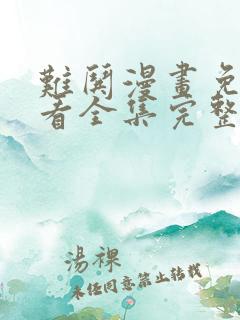 難鬨漫畫免
看全集完整
湯裸
未经同意禁止转载